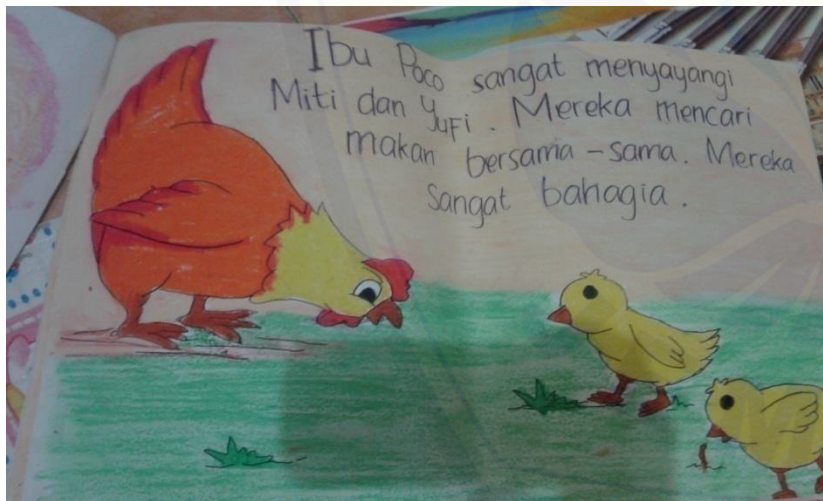 Ibu Poco sangat menyayangi
Miti dan Yufi. Mereka mencari
makan bersama-sama. Mereka
sangat bahagia.